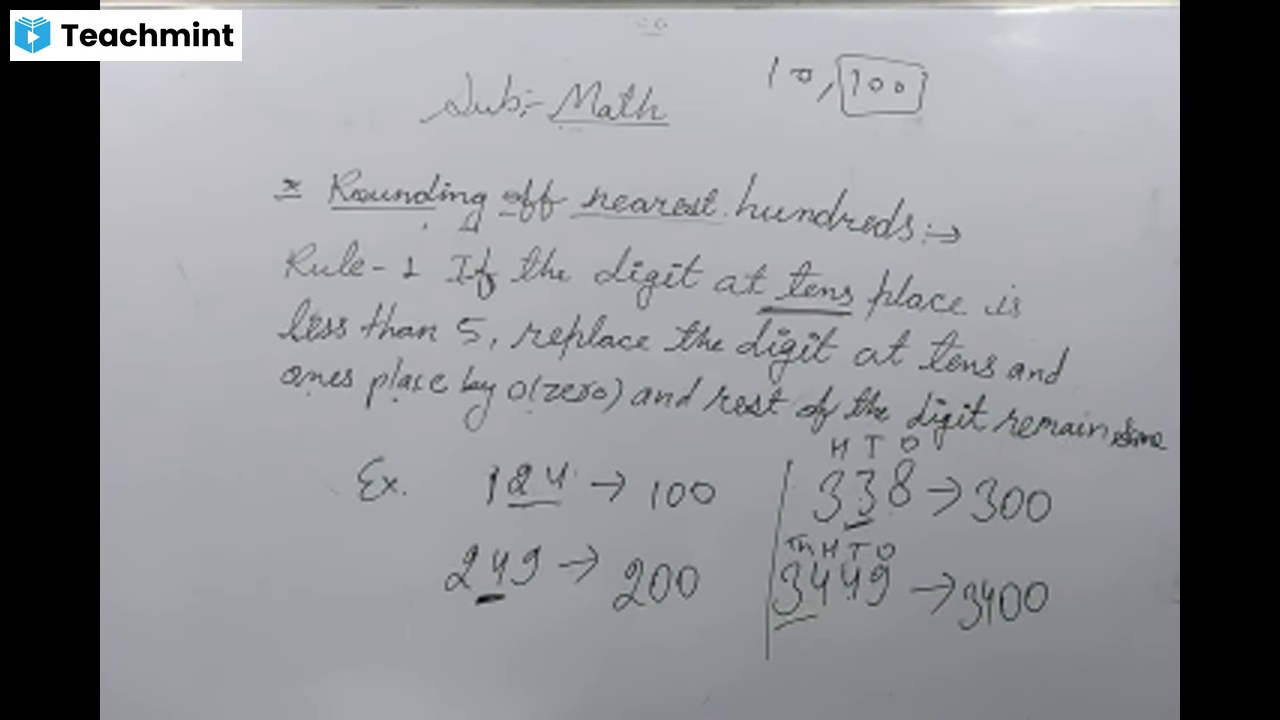 Teachmint
10, 100
Sub:- Math
* Rounding off nearest hundreds :→
Rule - 1 If the digit at tens place is
less than 5, replace the digit at tens and
ones place by 0(zero) and rest of the digit remain same
Ex. 124 → 100
249 → 200
H T O
338 → 300
Th H T O
3449 → 3400